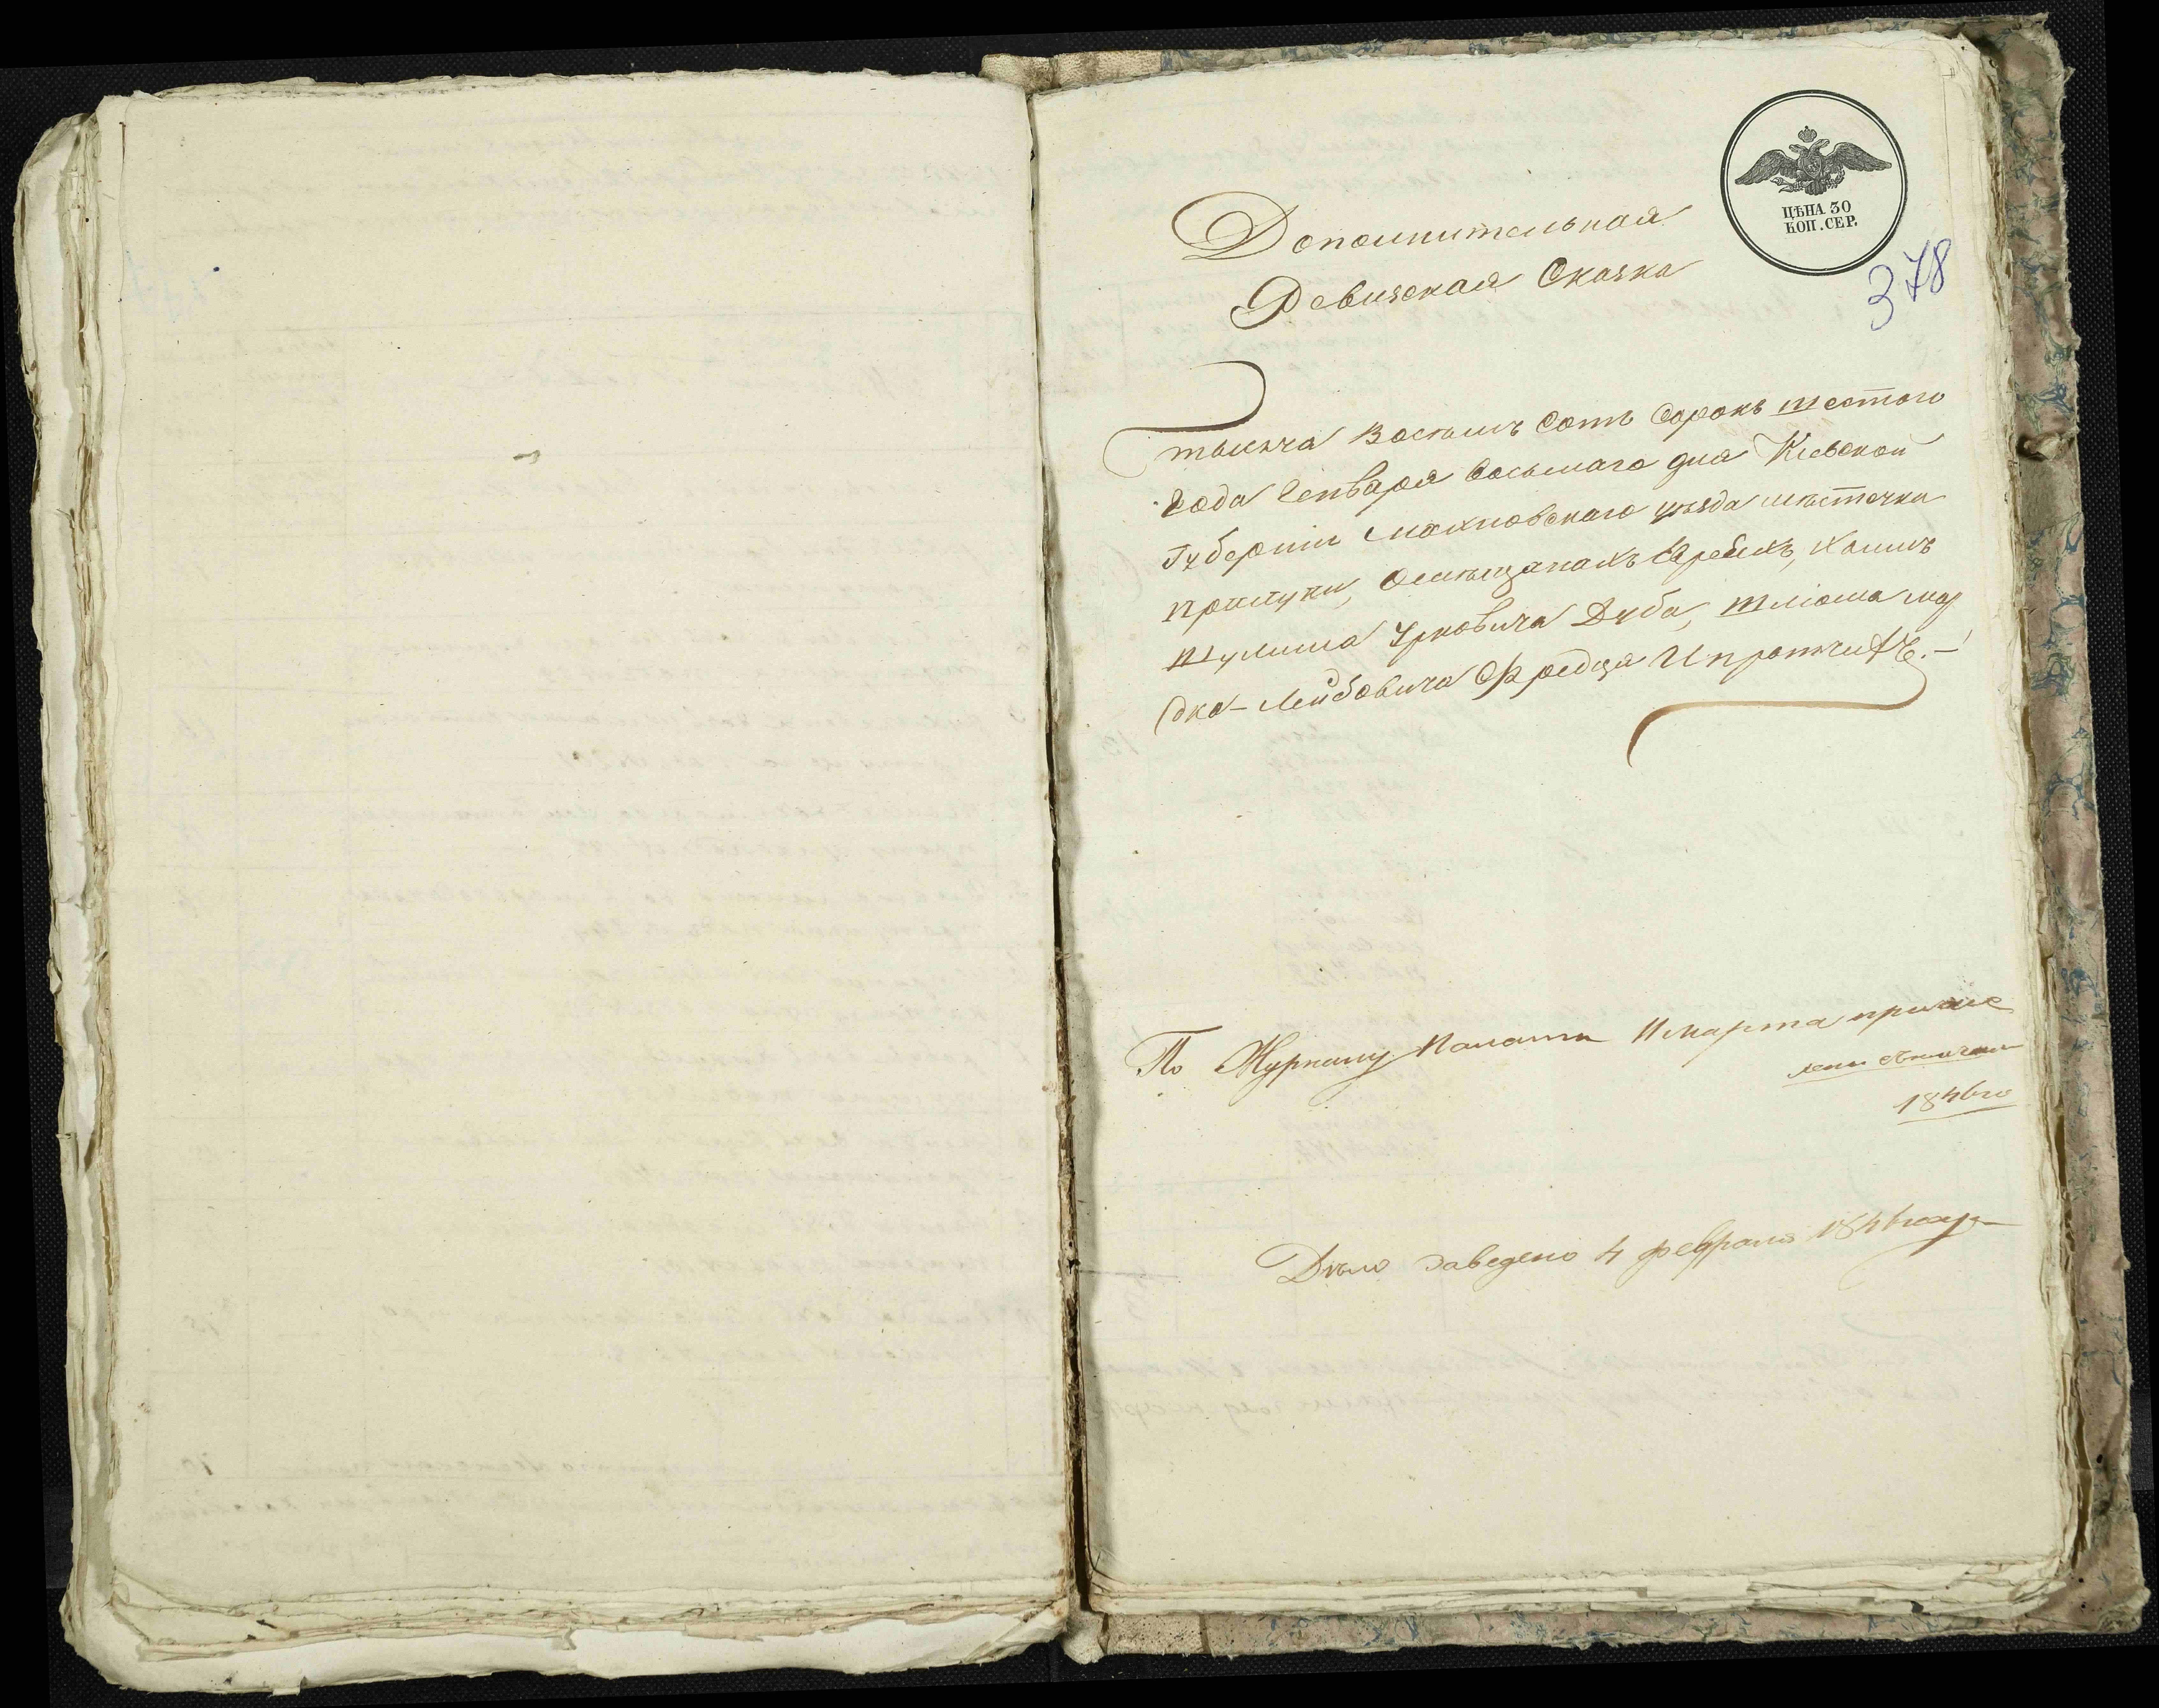 ЦѢНА 30
КОП. СЕР.
378
Дополнительная
Ревизская Сказка
тысяча Восемъ Сотъ Сорокъ шестого
Года Генваря восьмаго дня Кіевской
Губерніи Махновскаго уѣзда мѣстечка
Прилуки, О мѣщанахъ Евреяхъ, Хаимъ
Шулима Урковича Дуба, Шліома мор
дко-Лейбовича Фредца И протчихъ.-
По Журналу Палаты 11 марта причис
лены съ
1846го
Дѣло заведено 4 февраля 1846 года